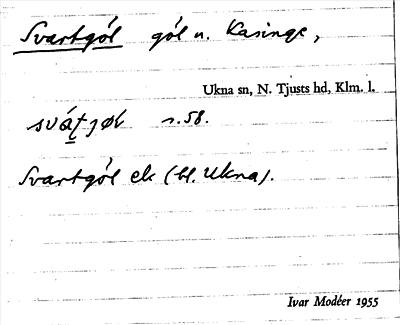 Svartgöl göl n. Kasinge,
Ukna sn, N. Tjusts hd, Klm. l.
s. 58.
Svartgöl ek (bl. Ukna).
Ivar Modéer 1955